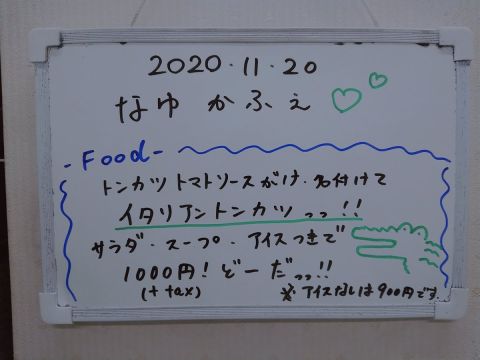 2020.11.20
なゆ かふぇ
-Food-
トンカツ トマトソースがけ.名付けて
イタリアントンカツっっ!!
サラダ・スープ・アイスつきで
1000円! どーだっっ!!
(+ tax)
※アイスなしは900円です